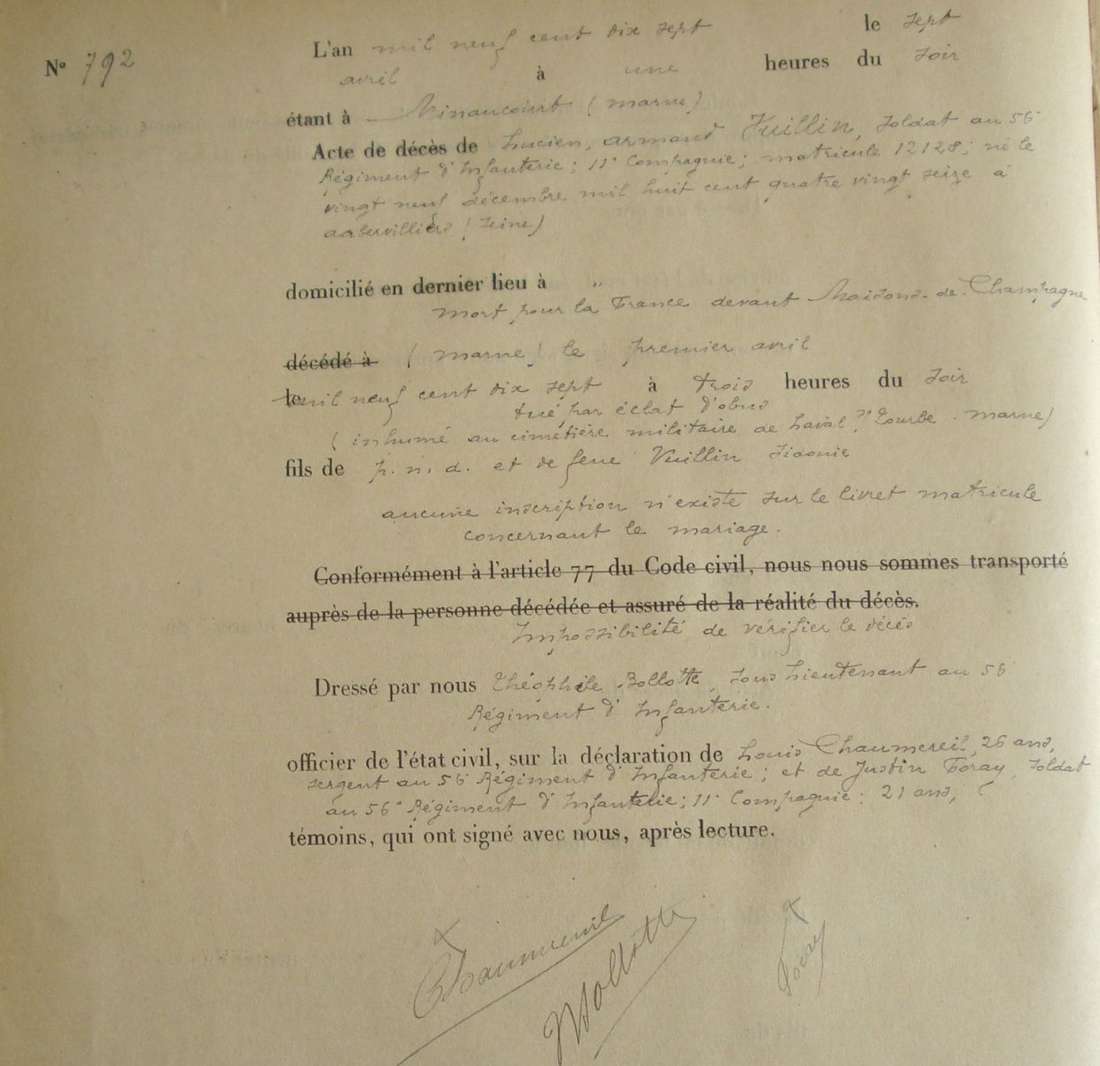 L'an mil neuf cent dix sept le sept
N° 792
avril à une heures du soir
étant à Minaucourt (marne)
Acte de décès de Lucien, armand Vuillin, soldat au 56
Régiment d'Infanterie; 11e Compagnie; matricule 12128; né le
vingt neuf décembre mil huit cent quatre vingt seize à
aubervilliers (seine)
domicilié en dernier lieu à "
mort pour la France devant Maisons-de-Champagne
décédé à (marne) le premier avril
le mil neuf cent dix sept à trois heures du soir
tué par éclat d'obus
(inhumé au cimetière militaire de Laval s/ Tourbe - marne)
fils de p. n. d. et de feue Vuillin Sidonie
aucune inscription n'existe sur le livret matricule
concernant le mariage.
Conformément à l'article 77 du Code civil, nous nous sommes transporté
auprès de la personne décédée et assuré de la réalité du décès.
Impossibilité de vérifier le décès
Dressé par nous Théophile Bollotte, sous Lieutenant au 56
Régiment d'Infanterie.
officier de l'état civil, sur la déclaration de Louis Chaumereil, 26 ans,
sergent au 56e Régiment d'Infanterie; et de Justin Foray, soldat
au 56e Régiment d'Infanterie; 11e Compagnie; 21 ans,
témoins, qui ont signé avec nous, après lecture.
Chaumereil
Bollotte
Foray